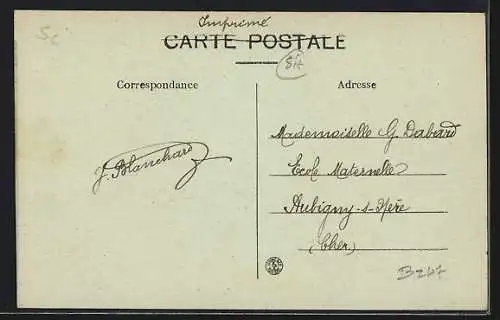 5c
Imprimé
CARTE POSTALE
Correspondance
Adresse
J. Blanchard
Mademoiselle G. Dabard
Ecole Maternelle
Aubigny-s-Nère
(Cher)
B247